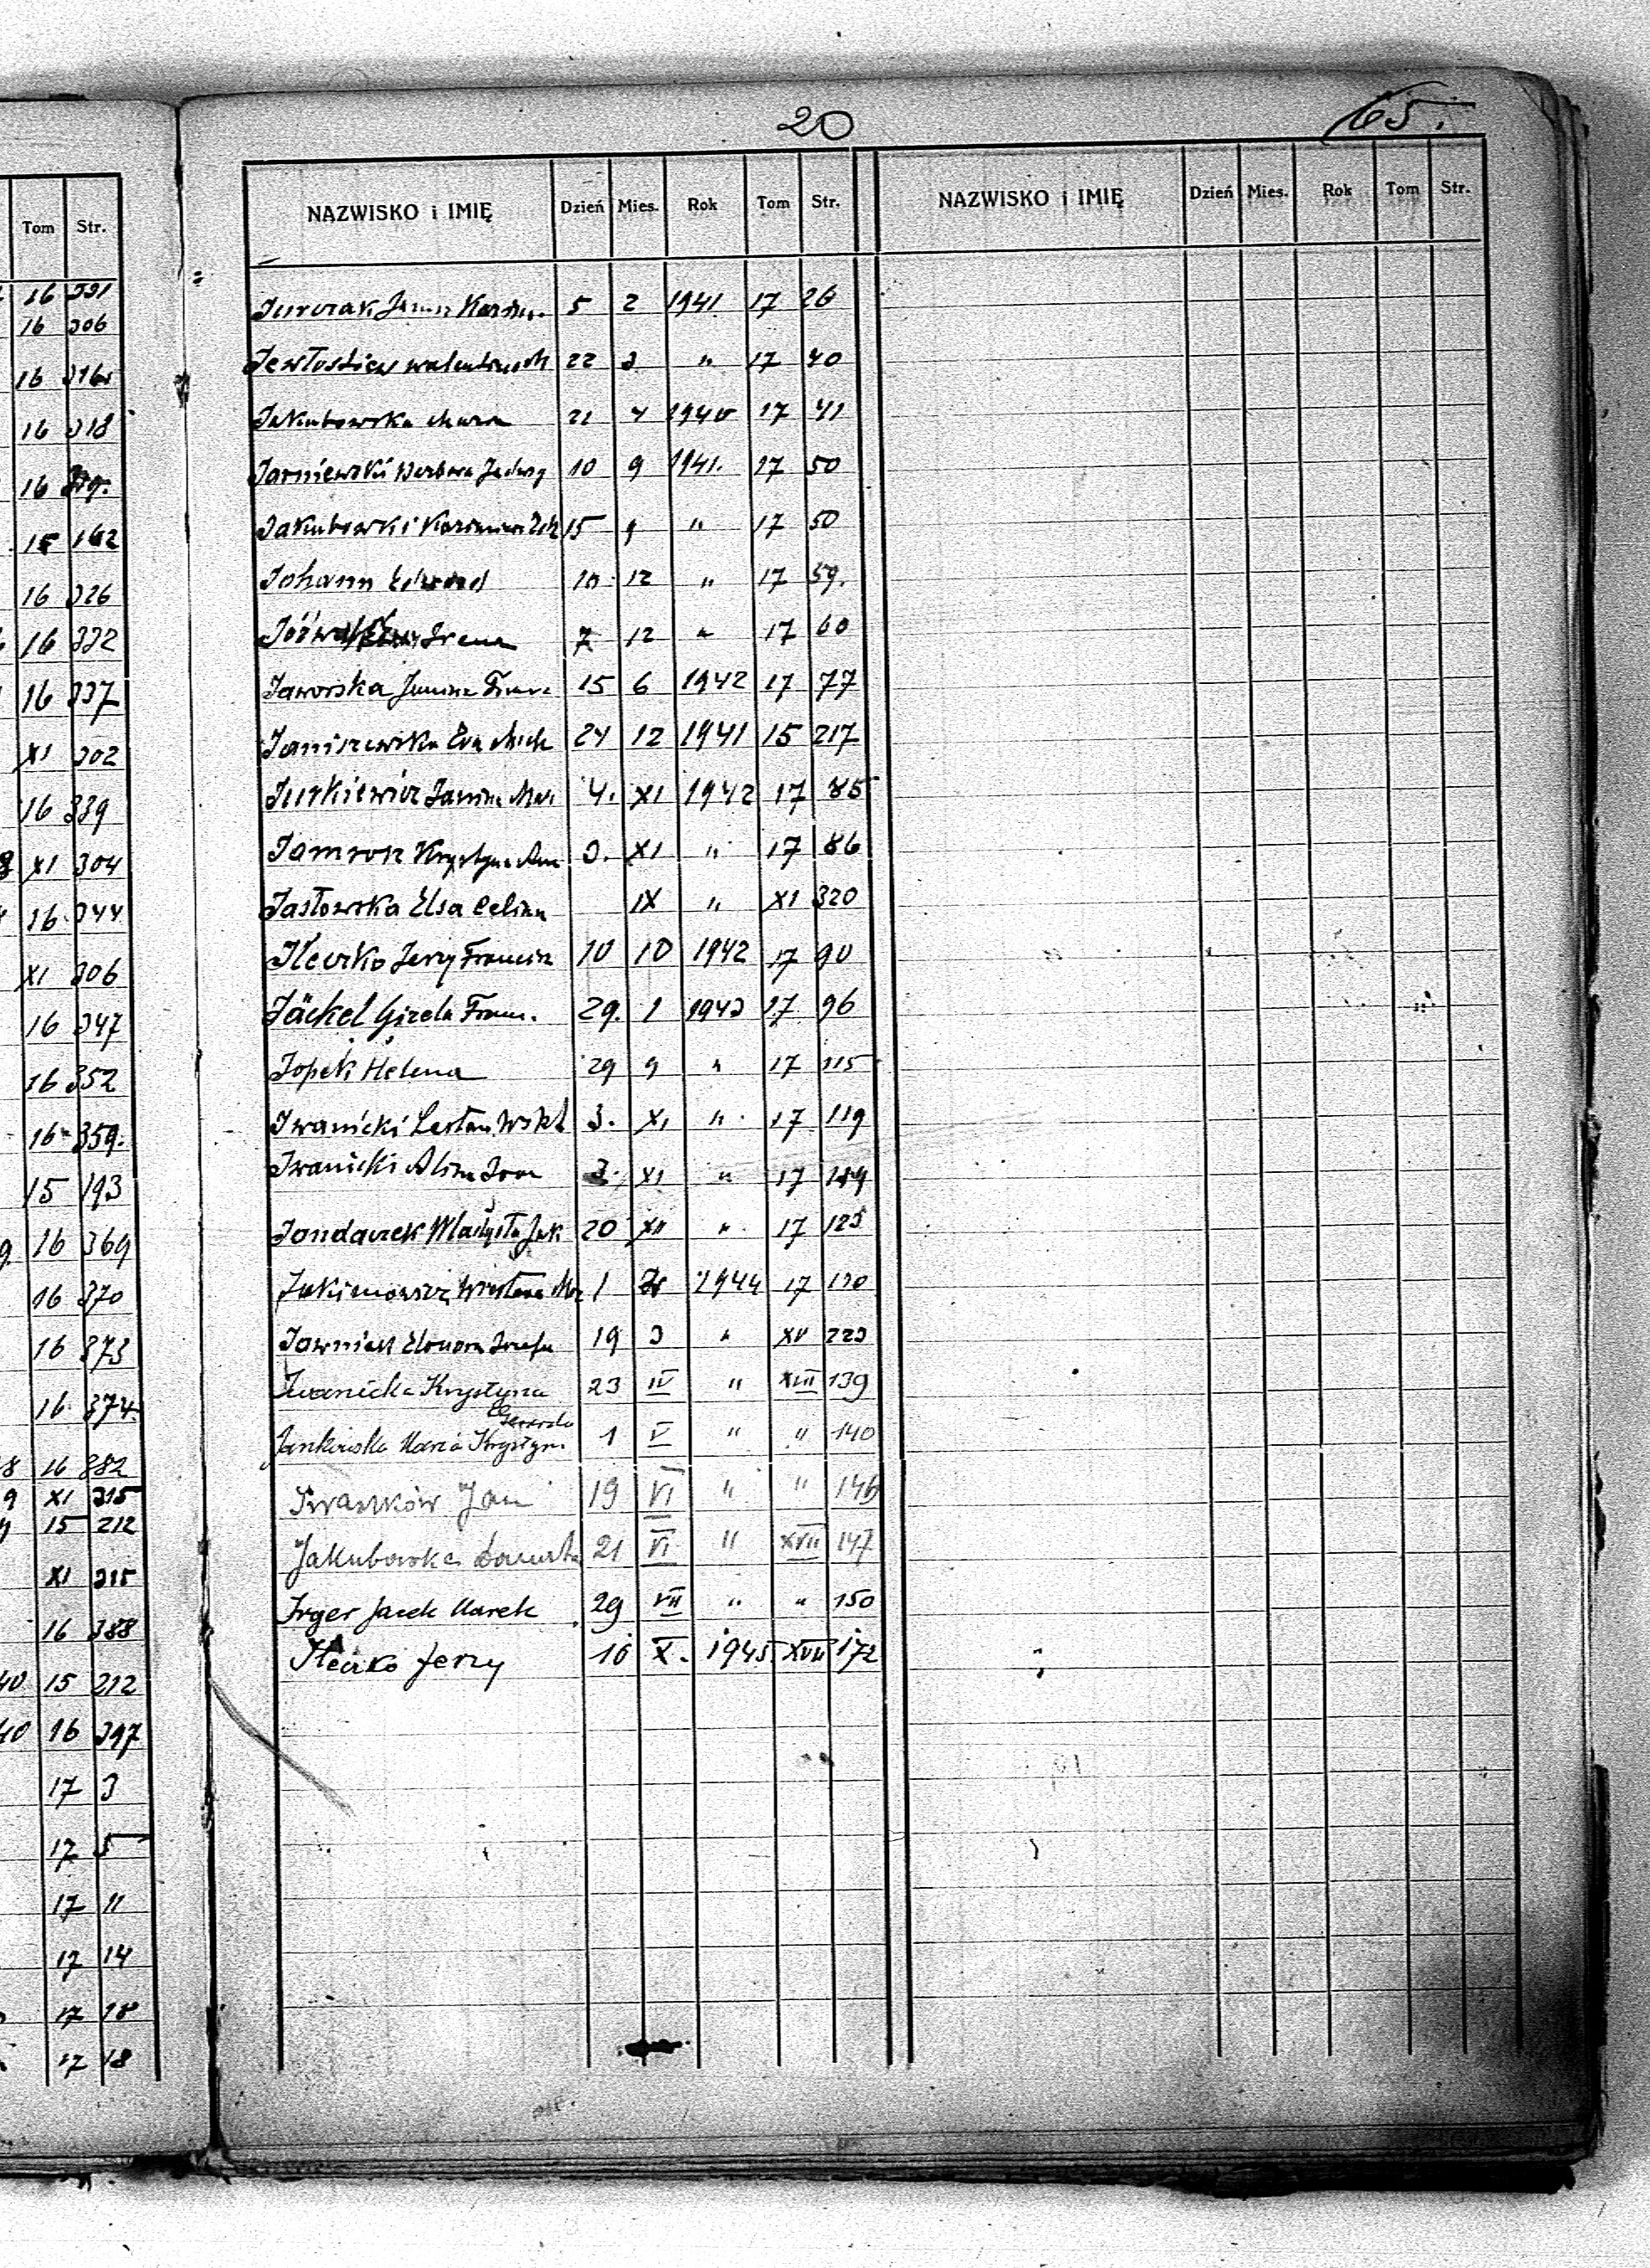 20
65.
Tom Str.
NAZWISKO i IMIĘ Dzień Mies. Rok Tom Str. NAZWISKO i IMIĘ Dzień Mies. Rok Tom Str.
16 331
16 306
16
16 318
16
15 162
16 326
16 332
16 337
XI 302
16 339
XI 304
16 344
XI 306
16 347
16 352
16 359.
15 193
16 369
16 370
16 373
16 374.
16 382
XI 315
15 212
XI 315
16 388
40 15 212
40 16 397
17 3
17 5
17 11
17 14
17 18
17 18
Jurczak 5 2 1941 17 26
22 3 " 17 40
Jakubowska 21 4 17 41
Jarniewski Barbara Jadwig 10 9 1941. 17 50
Jakubowski Kazimierz 15 9 " 17 50
Johann Edward 10 12 " 17 59.
Irena 7 12 " 17 60
Jaworska Janina 15 6 1942 17 77
Janiszewska Ewa 24 12 1941 15 217
Jurkiewicz Janina Mar. 4. XI 1942 17 85
Jamroz Krystyna 3. XI " 17 86
Jasłowska Elsa Celina IX " XI 320
Jerzy Francisz 10 10 1942 17 90
Jäckel Gizela Franc. 29. 1 1943 17 96
Jopek Helena 29 9 " 17 115
Iwanicki 3. XI " 17 119
Iwanicki Alina 3. XI " 17 119
Jandaczek Władysła Jak 20 XII " 17 125
Jakimowicz 1 1944 17 130
19 3 " XV 223
Iwanicka Krystyna 23 IV " XVII 139
Jankowska Maria Krystyna 1 V " " 140
Jan 19 VI " " 146
Jakubowska Danuta 21 VI " XVII 147
Irger Jacek Marek 29 VII " " 150
Jerzy 10 X. 1945. XVII 172